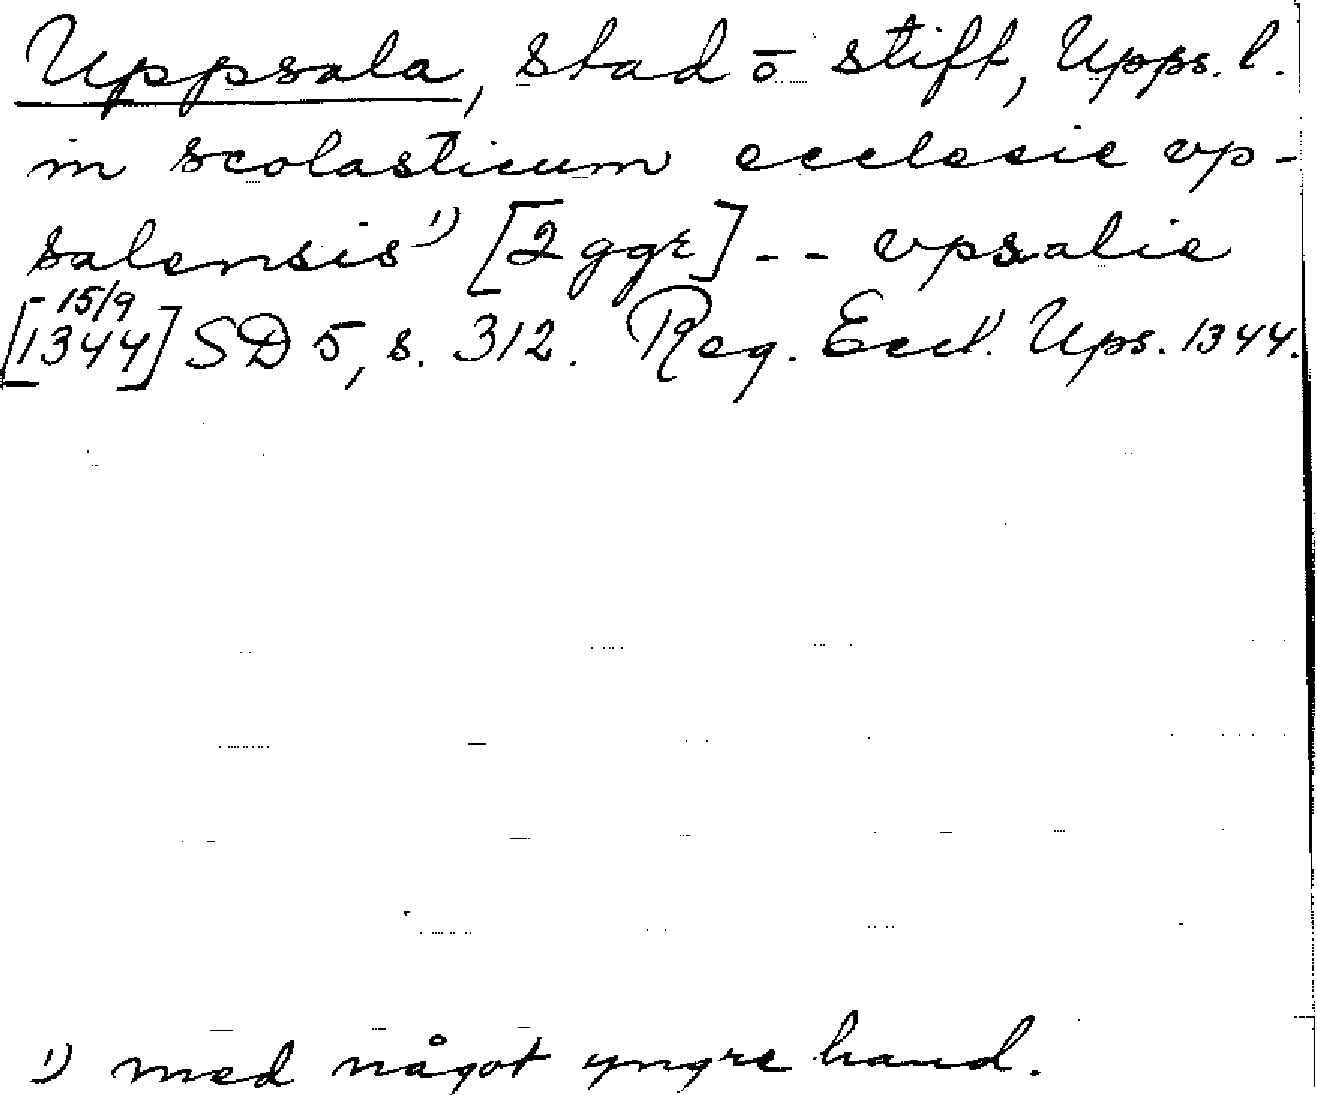 Uppsala, stad ō stift, Upps. l.
in scolasticum ecclesie vp-
salensis¹⁾ [2 ggr] - - vpsalie
[-15/9 1344] SD 5, s. 312. Reg. Eccl. Ups. 1344.
¹⁾ med något yngre hand.